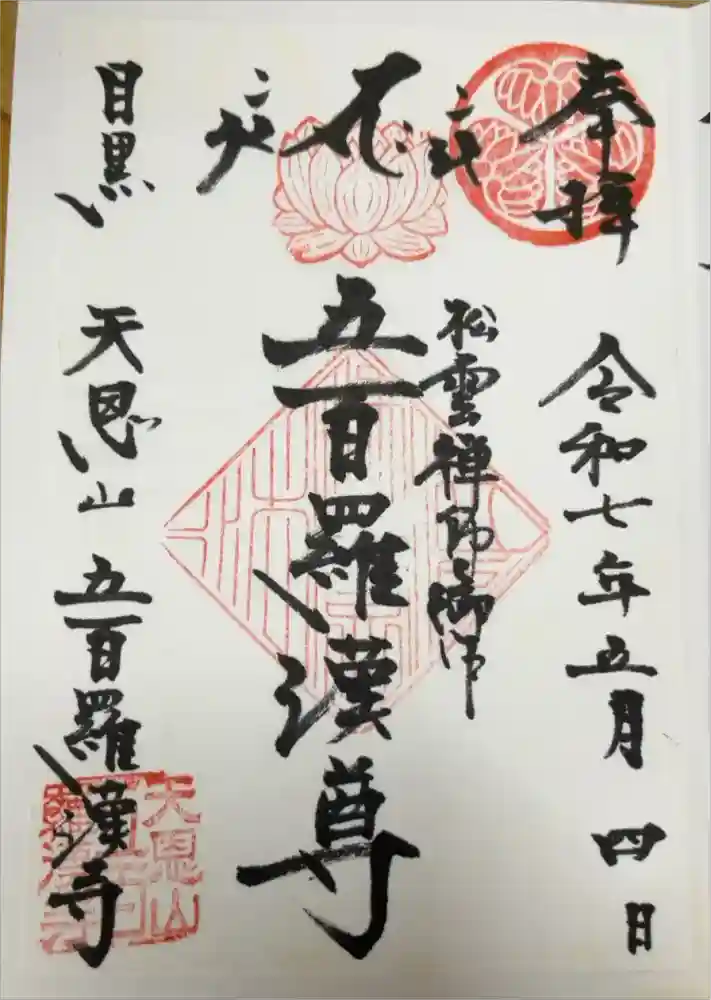 奉拝
令和七年五月四日
松雲禅師御作
五百羅漢尊
目黒
天恩山五百羅漢寺
天恩山
五百
羅漢寺